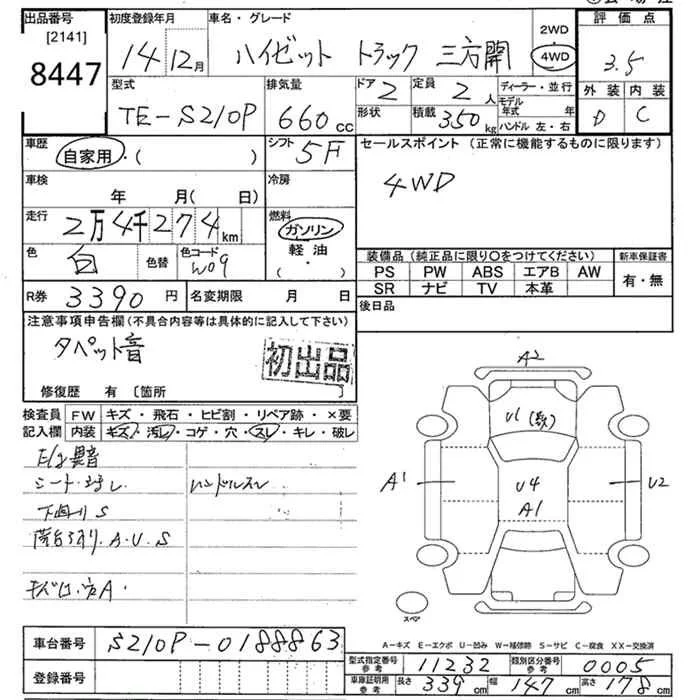 出品番号 [2141] 8447
初度登録年月 14 12月
車名・グレード ハイゼット トラック 三方開
2WD 4WD
評価点 3.5
外装 内装
D C
型式 TE-S210P
排気量 660cc
ドア 2 定員 2人
形状 積載 350kg
ディーラー・並行
モデル年式 年
ハンドル 左・右
車歴 自家用・( )
シフト 5F
セールスポイント (正常に機能するものに限ります)
4WD
車検 年 月( 日)
冷房
走行 2万4千274km
燃料 ガソリン 軽油 ( ・ )
色 白 色替 色コード W09
装備品 (純正品に限り〇をつけてください)
新車保証書
PS PW ABS エアB AW
SR ナビ TV 本革
有・無
R券 3390円 名変期限 月 日
後日品
注意事項申告欄 (不具合内容等は具体的に記入して下さい)
タペット音
初出品
修復歴 有 〔箇所 〕
検査員 FW キズ・飛石・ヒビ割・リペア跡・×要
記入欄 内装 キズ・汚レ・コゲ・穴・スレ・キレ・破レ
E/g異音
ハンドルスレ
荷台アオリ.A.U.S
A2
U1
A1
U4
A1
U2
スペア
A-キズ E-エクボ U-凹み W-補修跡 S-サビ C-腐食 XX-交換済
車台番号 S210P-0188863
登録番号
型式指定番号 参考 11232
類別区分番号 参考 0005
車庫証明用 参考 長さ 339cm 幅 147cm 高さ 178cm